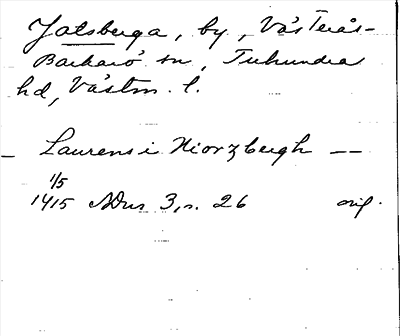 Jotsberga, by, Västerås-
Barkarö sn, Tuhundra
hd, Västm. l.
— Laurens i Hiorzbergh —
1/5
1415 SDns 3, s. 26 orig.